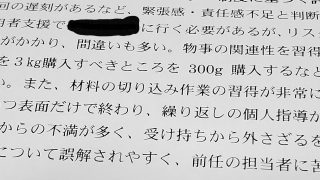 回の遅刻があるなど、緊張感・責任感不足と判断
用者支援で に行く必要があるが、リス
がかかり、間違いも多い。物事の関連性を習得
を3kg購入すべきところを300g購入するなど
い。また、材料の切り込み作業の習得が非常に
つ表面だけで終わり、繰り返しの個人指導が
からの不満が多く、受け持ちから外さざるを
について誤解されやすく、前任の担当者に苦